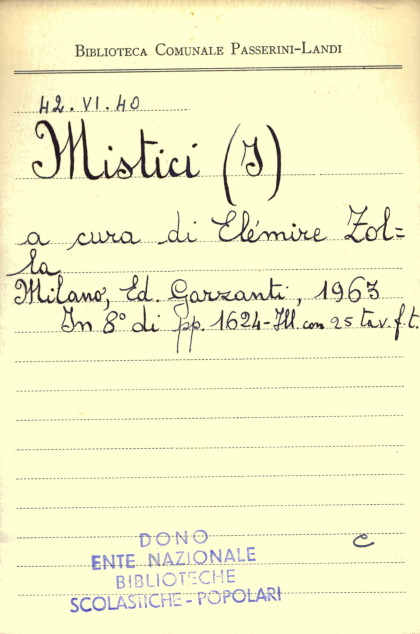 BIBLIOTECA COMUNALE PASSERINI-LANDI
42.VI.40
Mistici (I)
a cura di Elémire Zol=
la
Milano, Ed. Garzanti, 1963
In 8° di pp. 1624-Ill. con 25 tav. f.t.
DONO
ENTE NAZIONALE
BIBLIOTECHE
SCOLASTICHE-POPOLARI
c